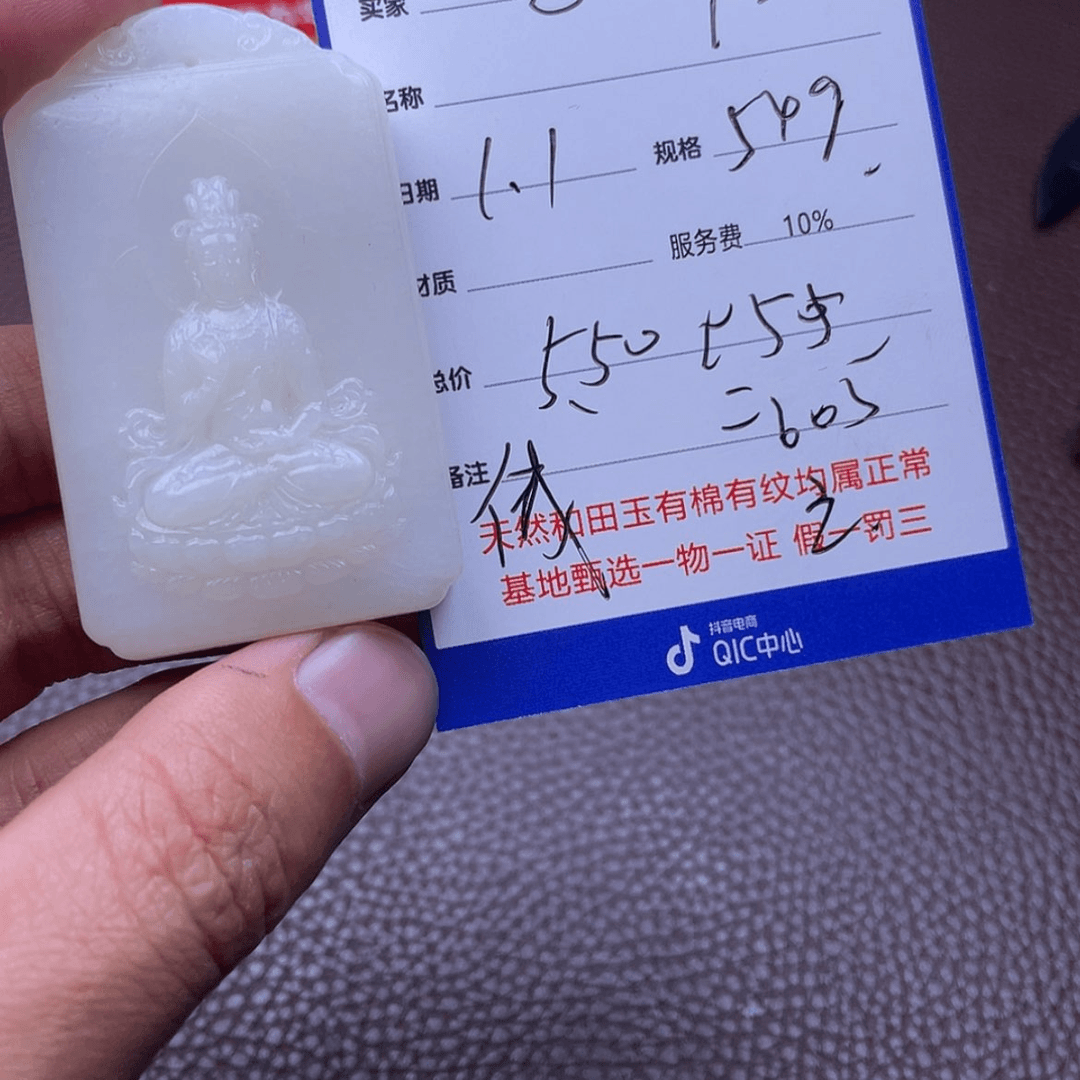 卖家
名称
日期 1.1 规格 50g
材质 服务费 10%
总价 550 +55
=605
备注
天然和田玉有棉有纹均属正常
基地甄选一物一证 假一罚三
抖音电商
QIC中心